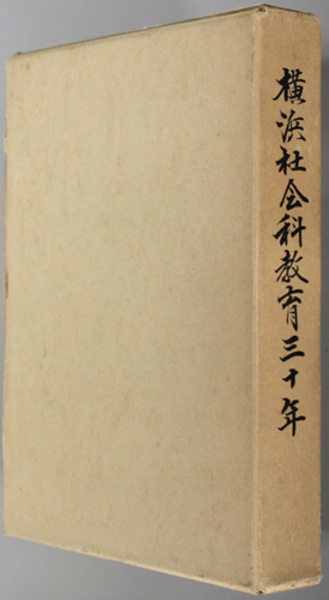 横浜社会科教育三十年